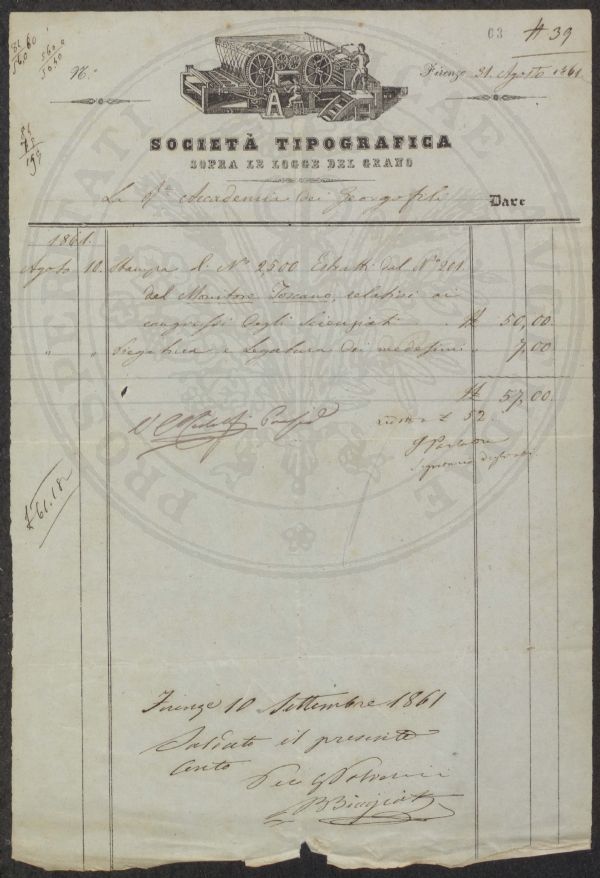 63 # 39
N.° Firenze 31. Agosto 1861
A
SOCIETÀ TIPOGRAFICA
SOPRA LE LOGGE DEL GRANO
La Rle Accademia dei Georgofili Dare
1861.
Agosto 10. Stampa di N° 2500 Estratti dal N° 201.
del Monitore Toscano, relativi ai
congressi degli Scienziati 50,00.
" " Piegatura e Legatura dei medesimi 7,00
57,00.
52
£ 61.18
Firenze 10 Settembre 1861
Saldato il presente
Conto
PROSPERITATI PUBLICAE